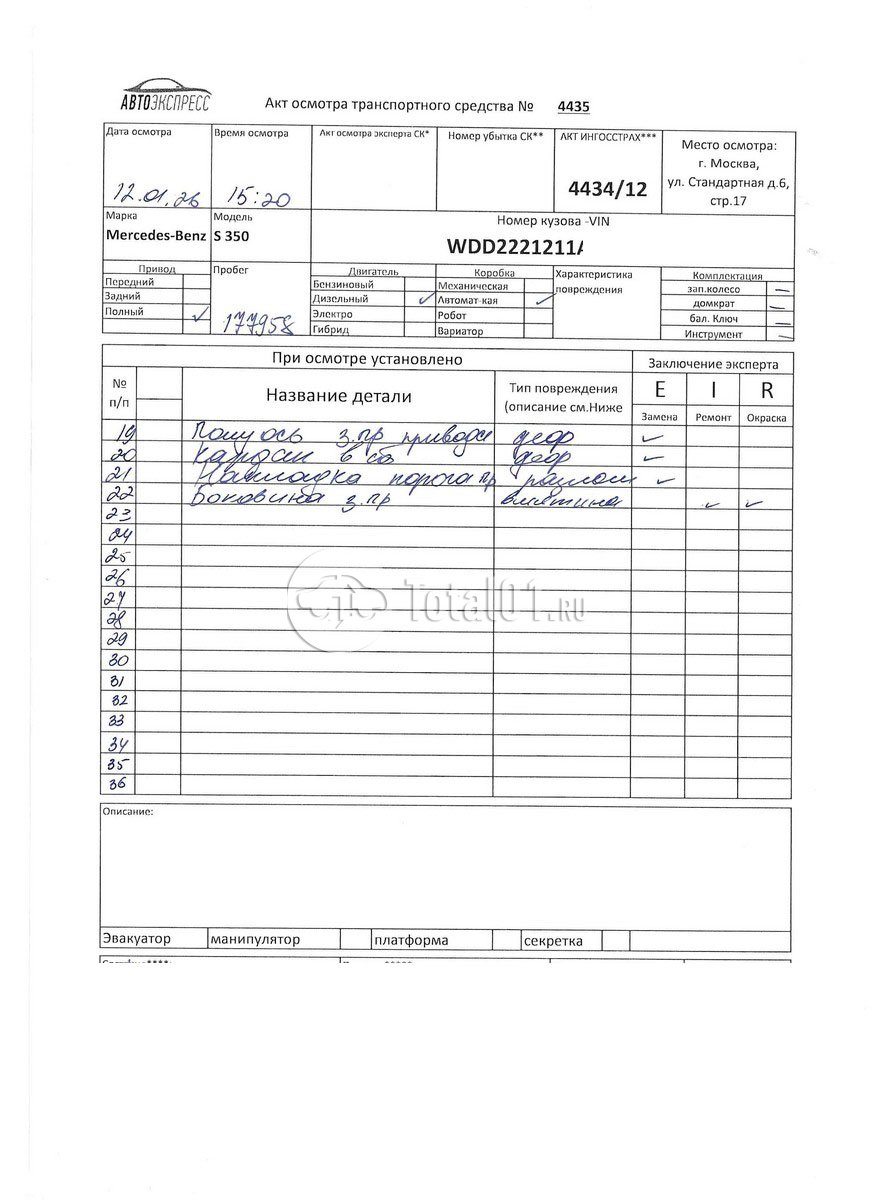 АВТОЭКСПРЕСС
Акт осмотра транспортного средства № 4435
Дата осмотра
Время осмотра
Акт осмотра эксперта СК*
Номер убытка СК**
АКТ ИНГОССТРАХ***
Место осмотра:
г. Москва,
ул. Стандартная д.6,
стр.17
12.01.26
15:20
4434/12
Марка
Модель
Номер кузова -VIN
Mercedes-Benz
S 350
WDD2221211
Привод
Пробег
Двигатель
Коробка
Характеристика
повреждения
Комплектация
Передний
Бензиновый
Механическая
зап.колесо
Задний
Дизельный ✓
Автомат-кая ✓
домкрат
Полный ✓
177958
Электро
Робот
бал. Ключ
Гибрид
Вариатор
Инструмент
При осмотре установлено
Заключение эксперта
№
п/п
Название детали
Тип повреждения
(описание см.Ниже
E I R
Замена Ремонт Окраска
19 Полуось з.пр привода деф ✓
20 Кардан в сб деф ✓
21 Накладка порога пр разлом ✓
22 Боковина з.пр вмятина ✓ ✓
23
24
25
26
27
28
29
30
31
32
33
34
35
36
Total01.RU
Описание:
Эвакуатор манипулятор платформа секретка